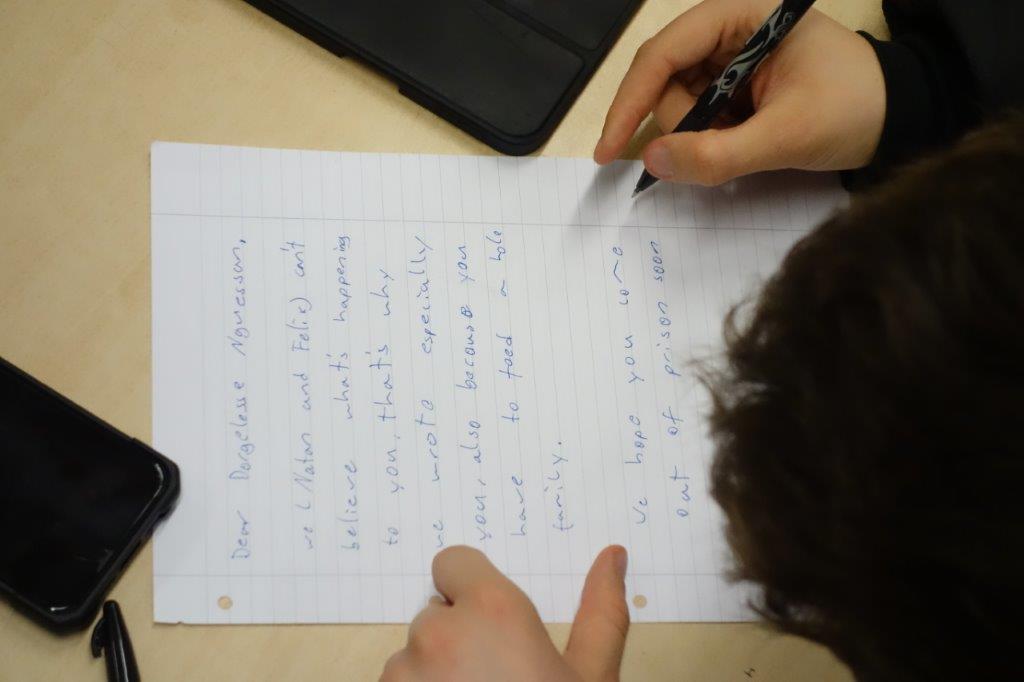 Dear Dorgelesse Nguessan,
we (Natan and Felix) can't
believe what's happening
to you, that's why
we wrote especially
you, also because you
have to feed a hole
family.
We hope you come
out of prison soon